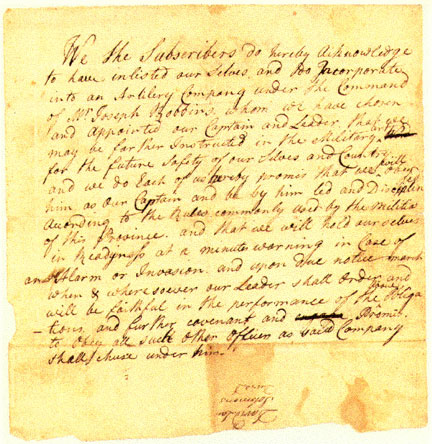 We the Subscribers do hereby Acknowledge
to have inlisted our Selves, and do Incorporate
into an Artilery Company under the Command
of Mr Joseph Robbins, whom we have chosen
and appointed our Captain and Leader, that we
may be farther Instructed in the Military
for the future Safety of our Selves and Country
and we do Each of us hereby promis that we will obey
him as our Captain and be by him led and Disciplin
Acording to the Rules commonly used by the Militia
of this Province. and that we will hold ourselves
in Readyness at a minute worning in Case of
an Alarm or Invasion. and upon due notice march
when & where soever our Leader shall order and
will be faithful in the performance of the Obliga
-tions, and further covenant and Promis
to obey all such other Officers as said Company
shall chuse under him.